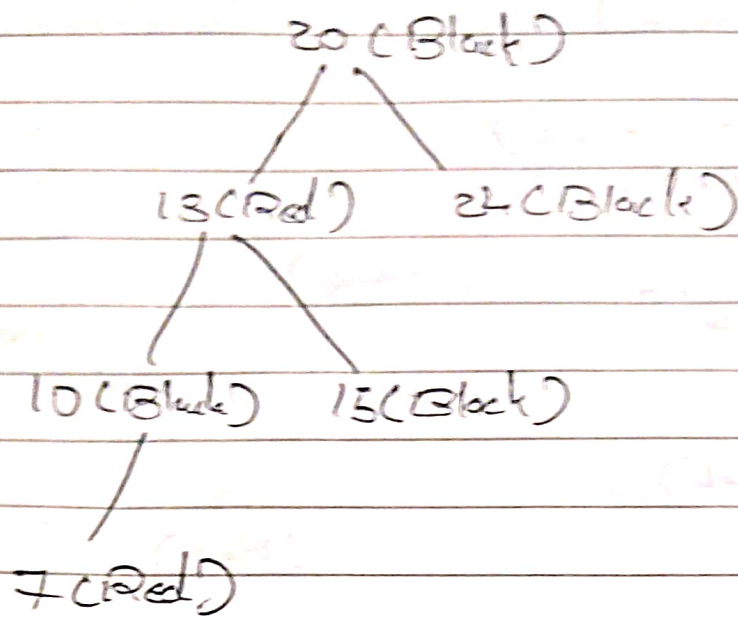 20 (Black)
13 (Red) 22 (Black)
10 (Black) 15 (Black)
7 (Red)